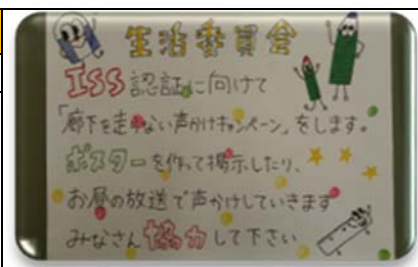 生活委員会
ISS認証に向けて
「廊下を走らない声かけキャンペーン」をします。
ポスターを作って掲示したり、
お昼の放送で声かけしていきます
みなさん協力して下さい